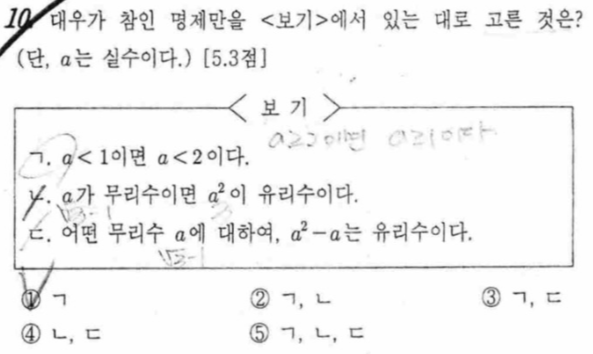 10. 대우가 참인 명제만을 <보기>에서 있는 대로 고른 것은?
(단, a는 실수이다.) [5.3점]
보 기
a≥2이면 a≥1이다
ㄱ. a<1이면 a<2이다.
ㄴ. a가 무리수이면 a²이 유리수이다.
√3-1
ㄷ. 어떤 무리수 a에 대하여, a²-a는 유리수이다.
√3-1
① ㄱ ② ㄱ, ㄴ ③ ㄱ, ㄷ
④ ㄴ, ㄷ ⑤ ㄱ, ㄴ, ㄷ